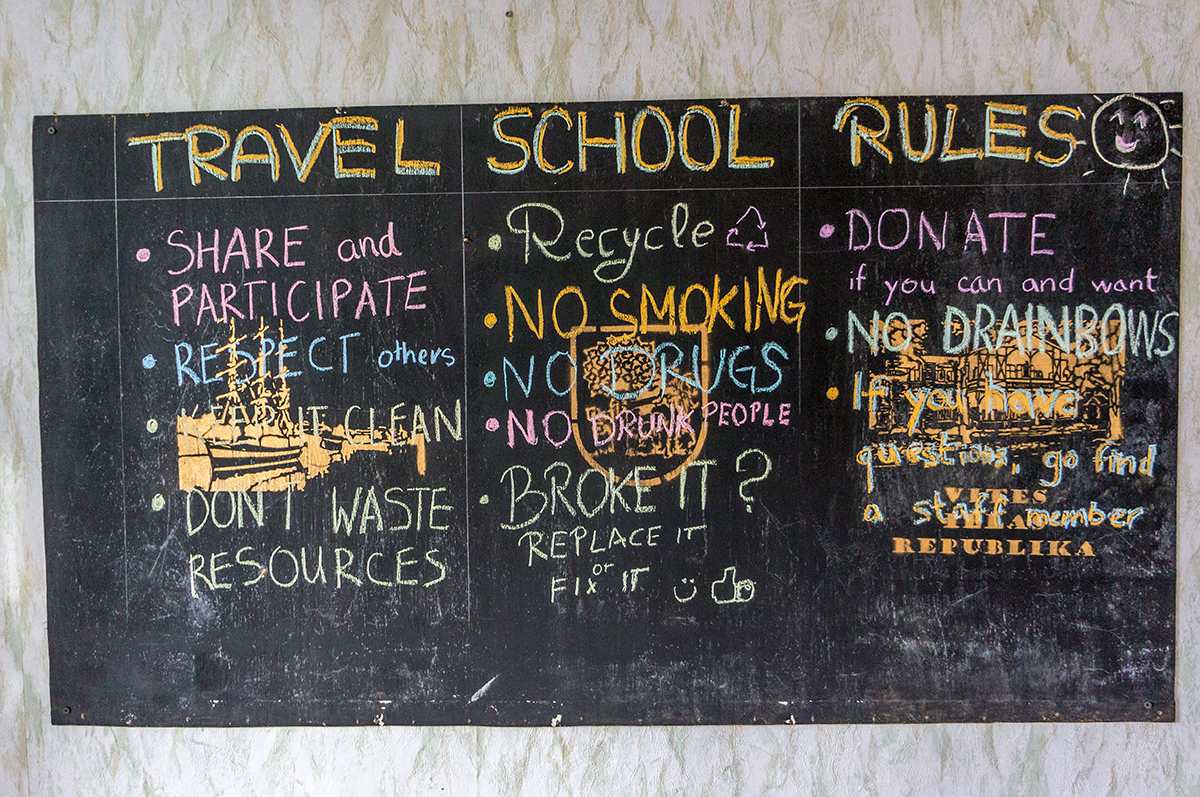 TRAVEL SCHOOL RULES
• SHARE and
PARTICIPATE
• RESPECT others
• KEEP IT CLEAN
• DON'T WASTE
RESOURCES
• Recycle
• NO SMOKING
• NO DRUGS
• NO DRUNK PEOPLE
• BROKE IT ?
REPLACE IT
or
FIX IT
• DONATE
if you can and want
• NO DRAINBOWS
• If you have
questions, go find
a staff member
REPUBLIKA